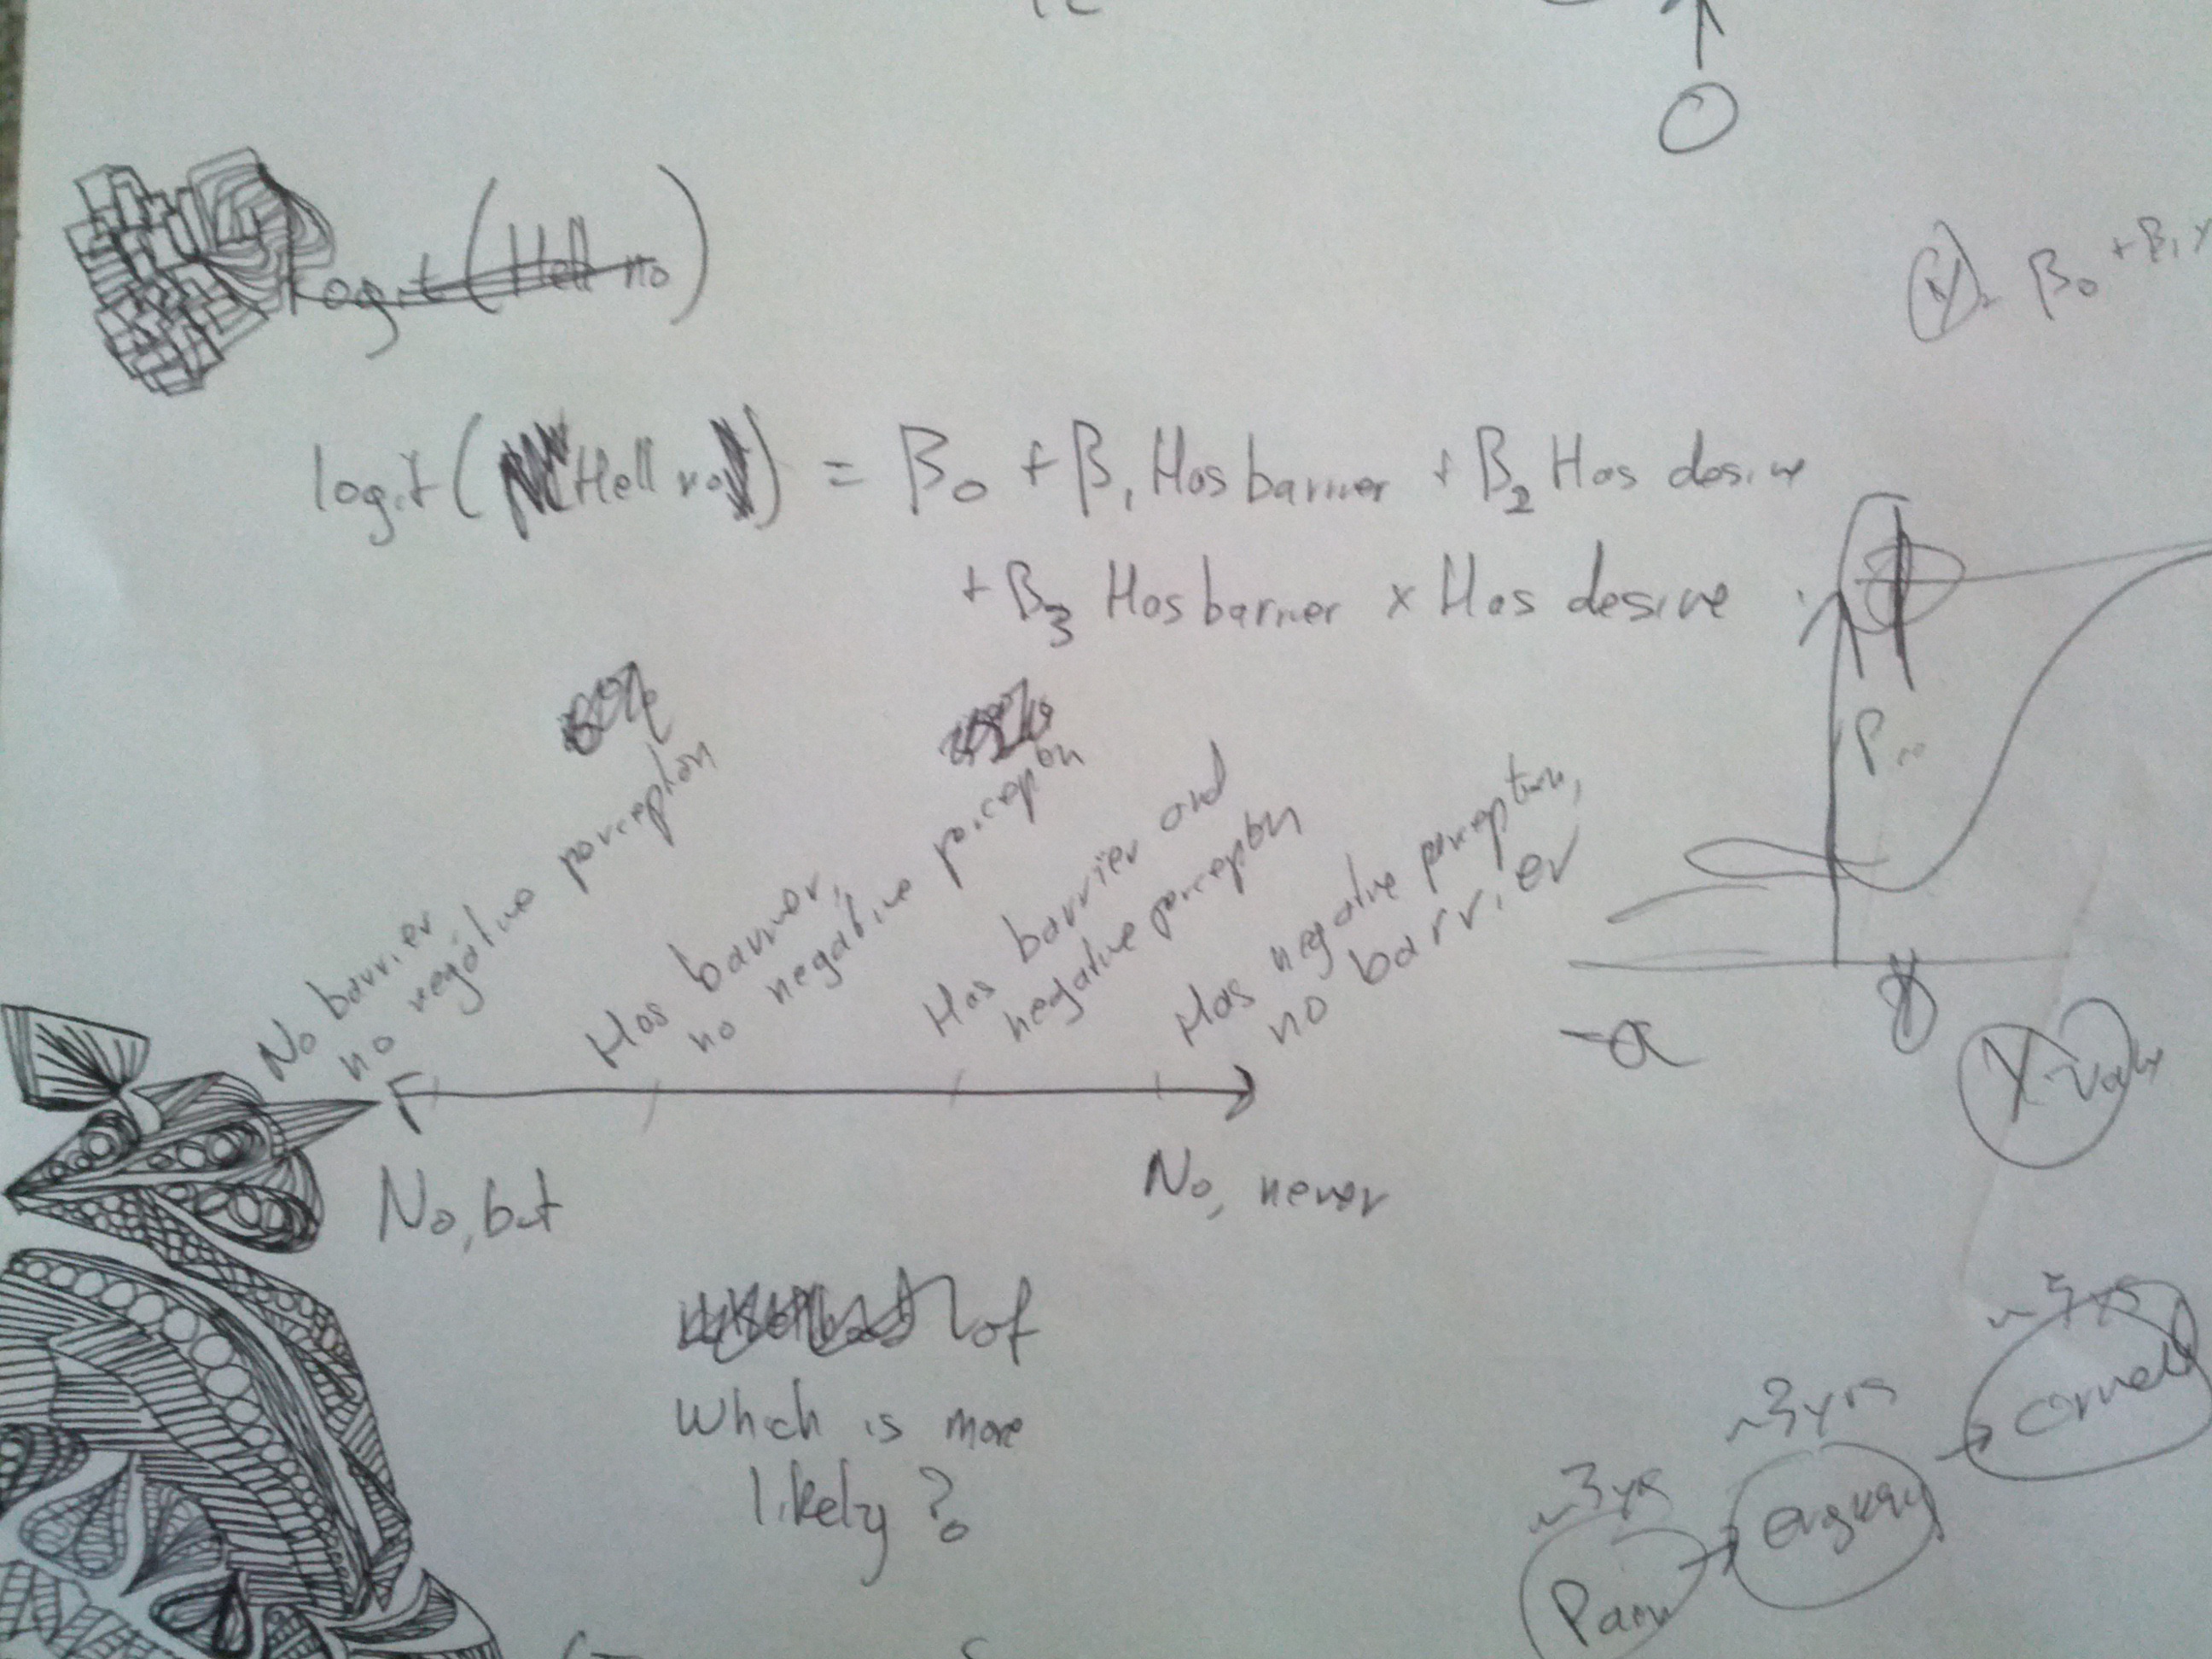 logit (Hell no)
logit ( Hell no ) = β0 + β1 Has barrier + β2 Has desire
+ β3 Has barrier x Has desire
β0 + β1
80%
P
No barrier
no negative perception
Has barrier,
no negative perception
Has barrier and
negative perception
Has negative perception,
no barrier
No, but
No, never
-α
X value
of
Which is more
likely?
~3 yrs
~3 yrs
~3 yrs